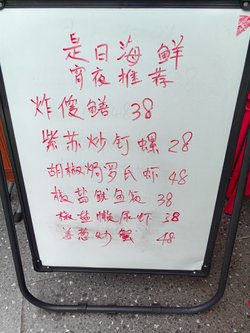 是日海鲜
宵夜推荐
炸傻鳝 38
紫苏炒钉螺 28
胡椒焗罗氏虾 48
椒盐鱿鱼须 38
椒盐濑尿虾 38
姜葱炒蟹 48